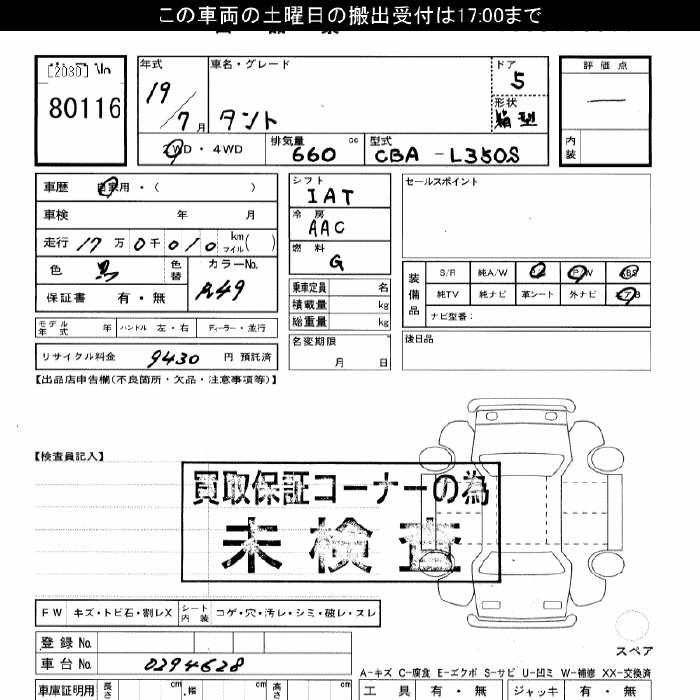 この車両の土曜日の搬出受付は17:00まで
[2030] No
80116
年式
19/7月
車名・グレード
タント
ドア
5
形状
箱型
評価点
—
内装
2WD・4WD
排気量
660 cc
型式
CBA-L350S
車歴 自家用・( )
車検 年 月
走行 17万0千010 km マイル( )
色 黒 色替 カラーNo. A49
保証書 有・無
モデル年式 年 ハンドル 左・右 ディーラー・並行
リサイクル料金 9430 円 預託済
シフト
IAT
冷房
AAC
燃料
G
乗車定員 名
積載量 kg
総重量 kg
名変期限
月 日
セールスポイント
装備品
S/R 純A/W P/S P/W ABS
純TV 純ナビ 革シート 外ナビ エアB
ナビ型番:
後日品
【出品店申告欄(不良箇所・欠品・注意事項等)】
【検査員記入】
買取保証コーナーの為
未検査
FW キズ・トビ石・割レX シート内装 コゲ・穴・汚レ・シミ・破レ・スレ
登録No.
車台No. 0294628
スペア
A-キズ C-腐食 E-エクボ S-サビ U-凹ミ W-補修 XX-交換済
車庫証明用 長さ cm 幅 cm 高さ cm
工具 有・無 ジャッキ 有・無